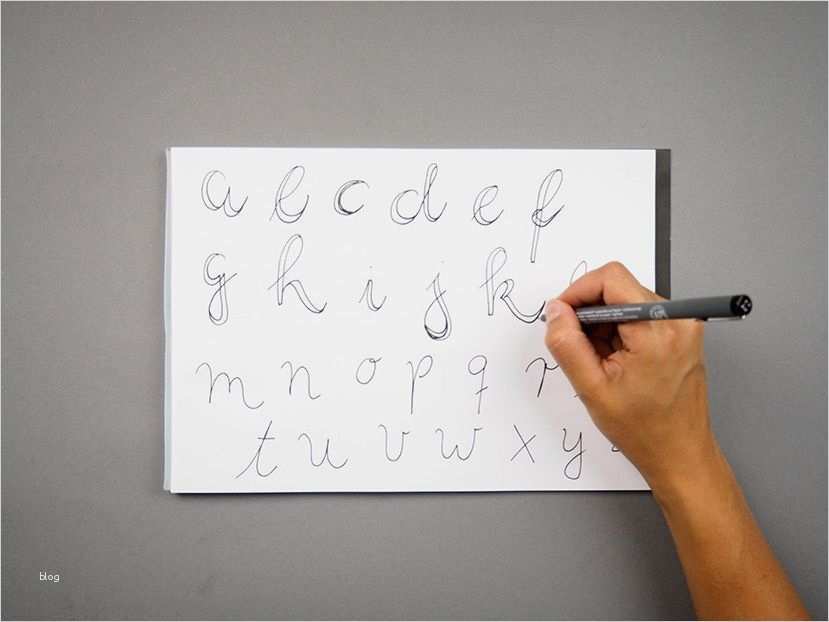 a b c d e f
g h i j k l
m n o p q r
t u v w x y
blog